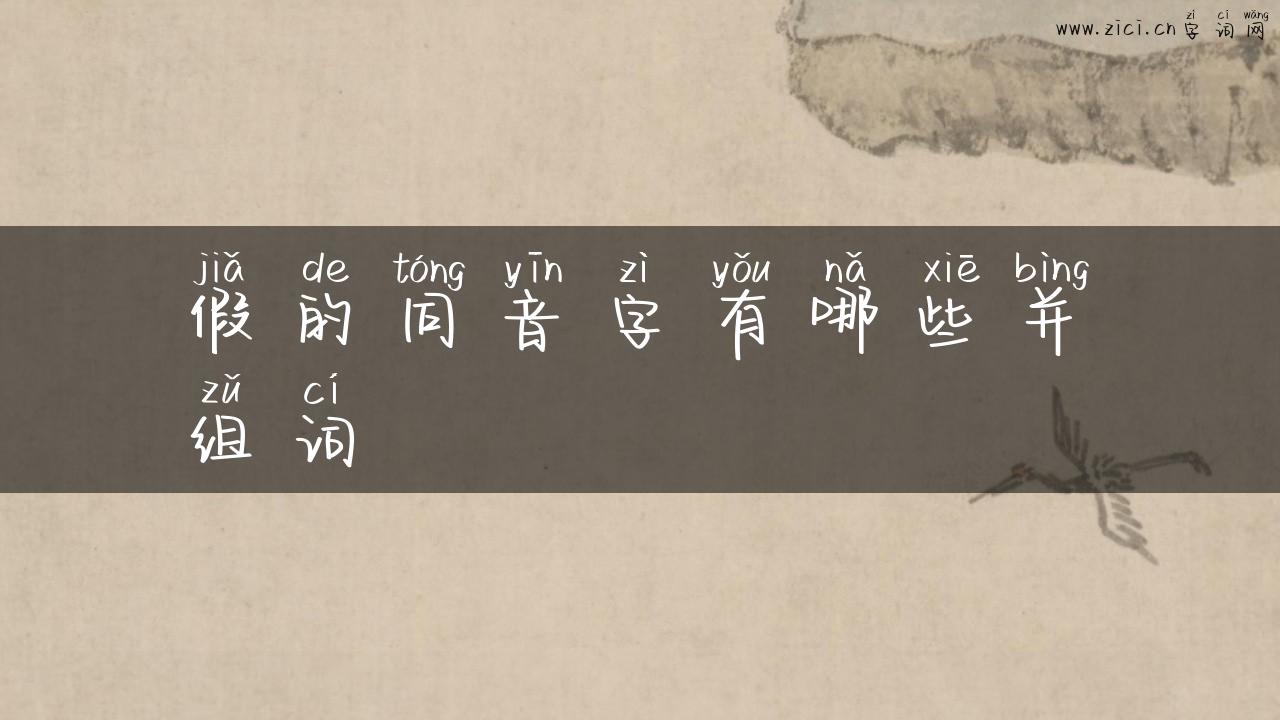 zì cí wǎng
www.zici.cn 字词网
jiǎ de tóng yīn zì yǒu nǎ xiē bìng
假的同音字有哪些并
zǔ cí
组词